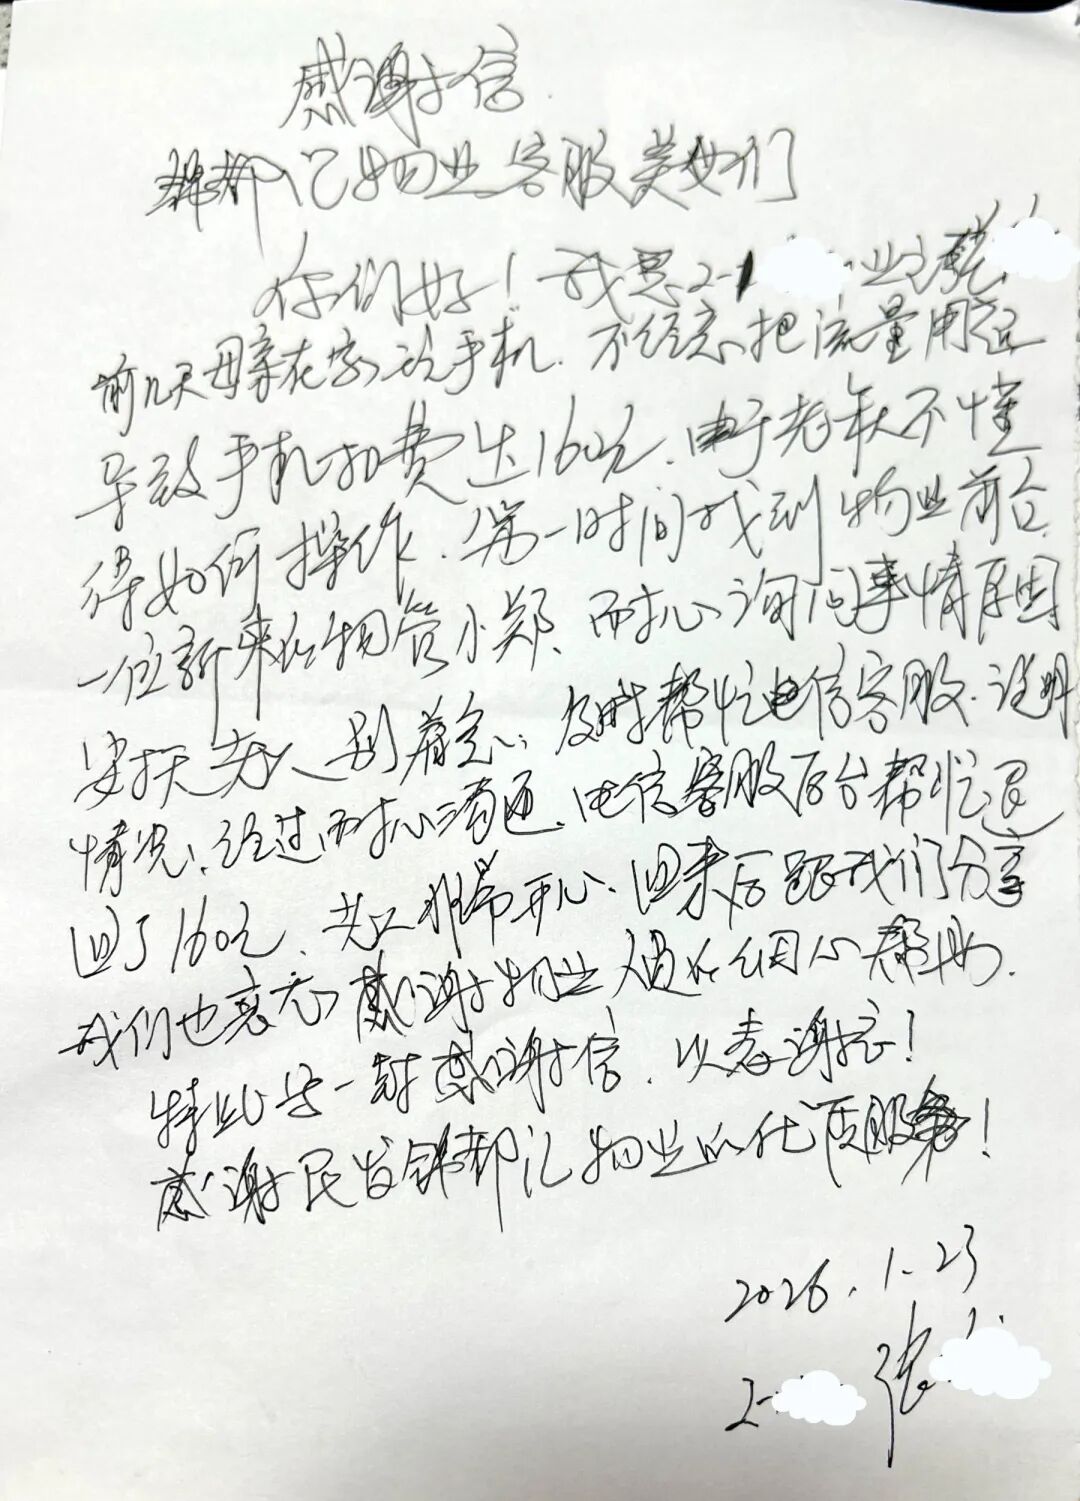 感谢信
锦都汇物业客服美女们
你们好！我是2-1 业主
前几天母亲在家玩手机．不经意把流量用超
导致手机扣费达160元．由于老年人不懂
得如何操作．第一时间找到物业前台．
一位新来的物管小郑、而耐心询问事情原因
安抚老人别着急；及时帮忙电信客服．说明
情况、经过耐心沟通、电信客服后台帮忙退
回了160元、老人非常开心．回来后跟我们分享
我们也衷心感谢物业人员的细心帮助．
特此写一封感谢信．以表谢意！
感谢民发锦都汇物业的优质服务！
2026.1.23
2- 张